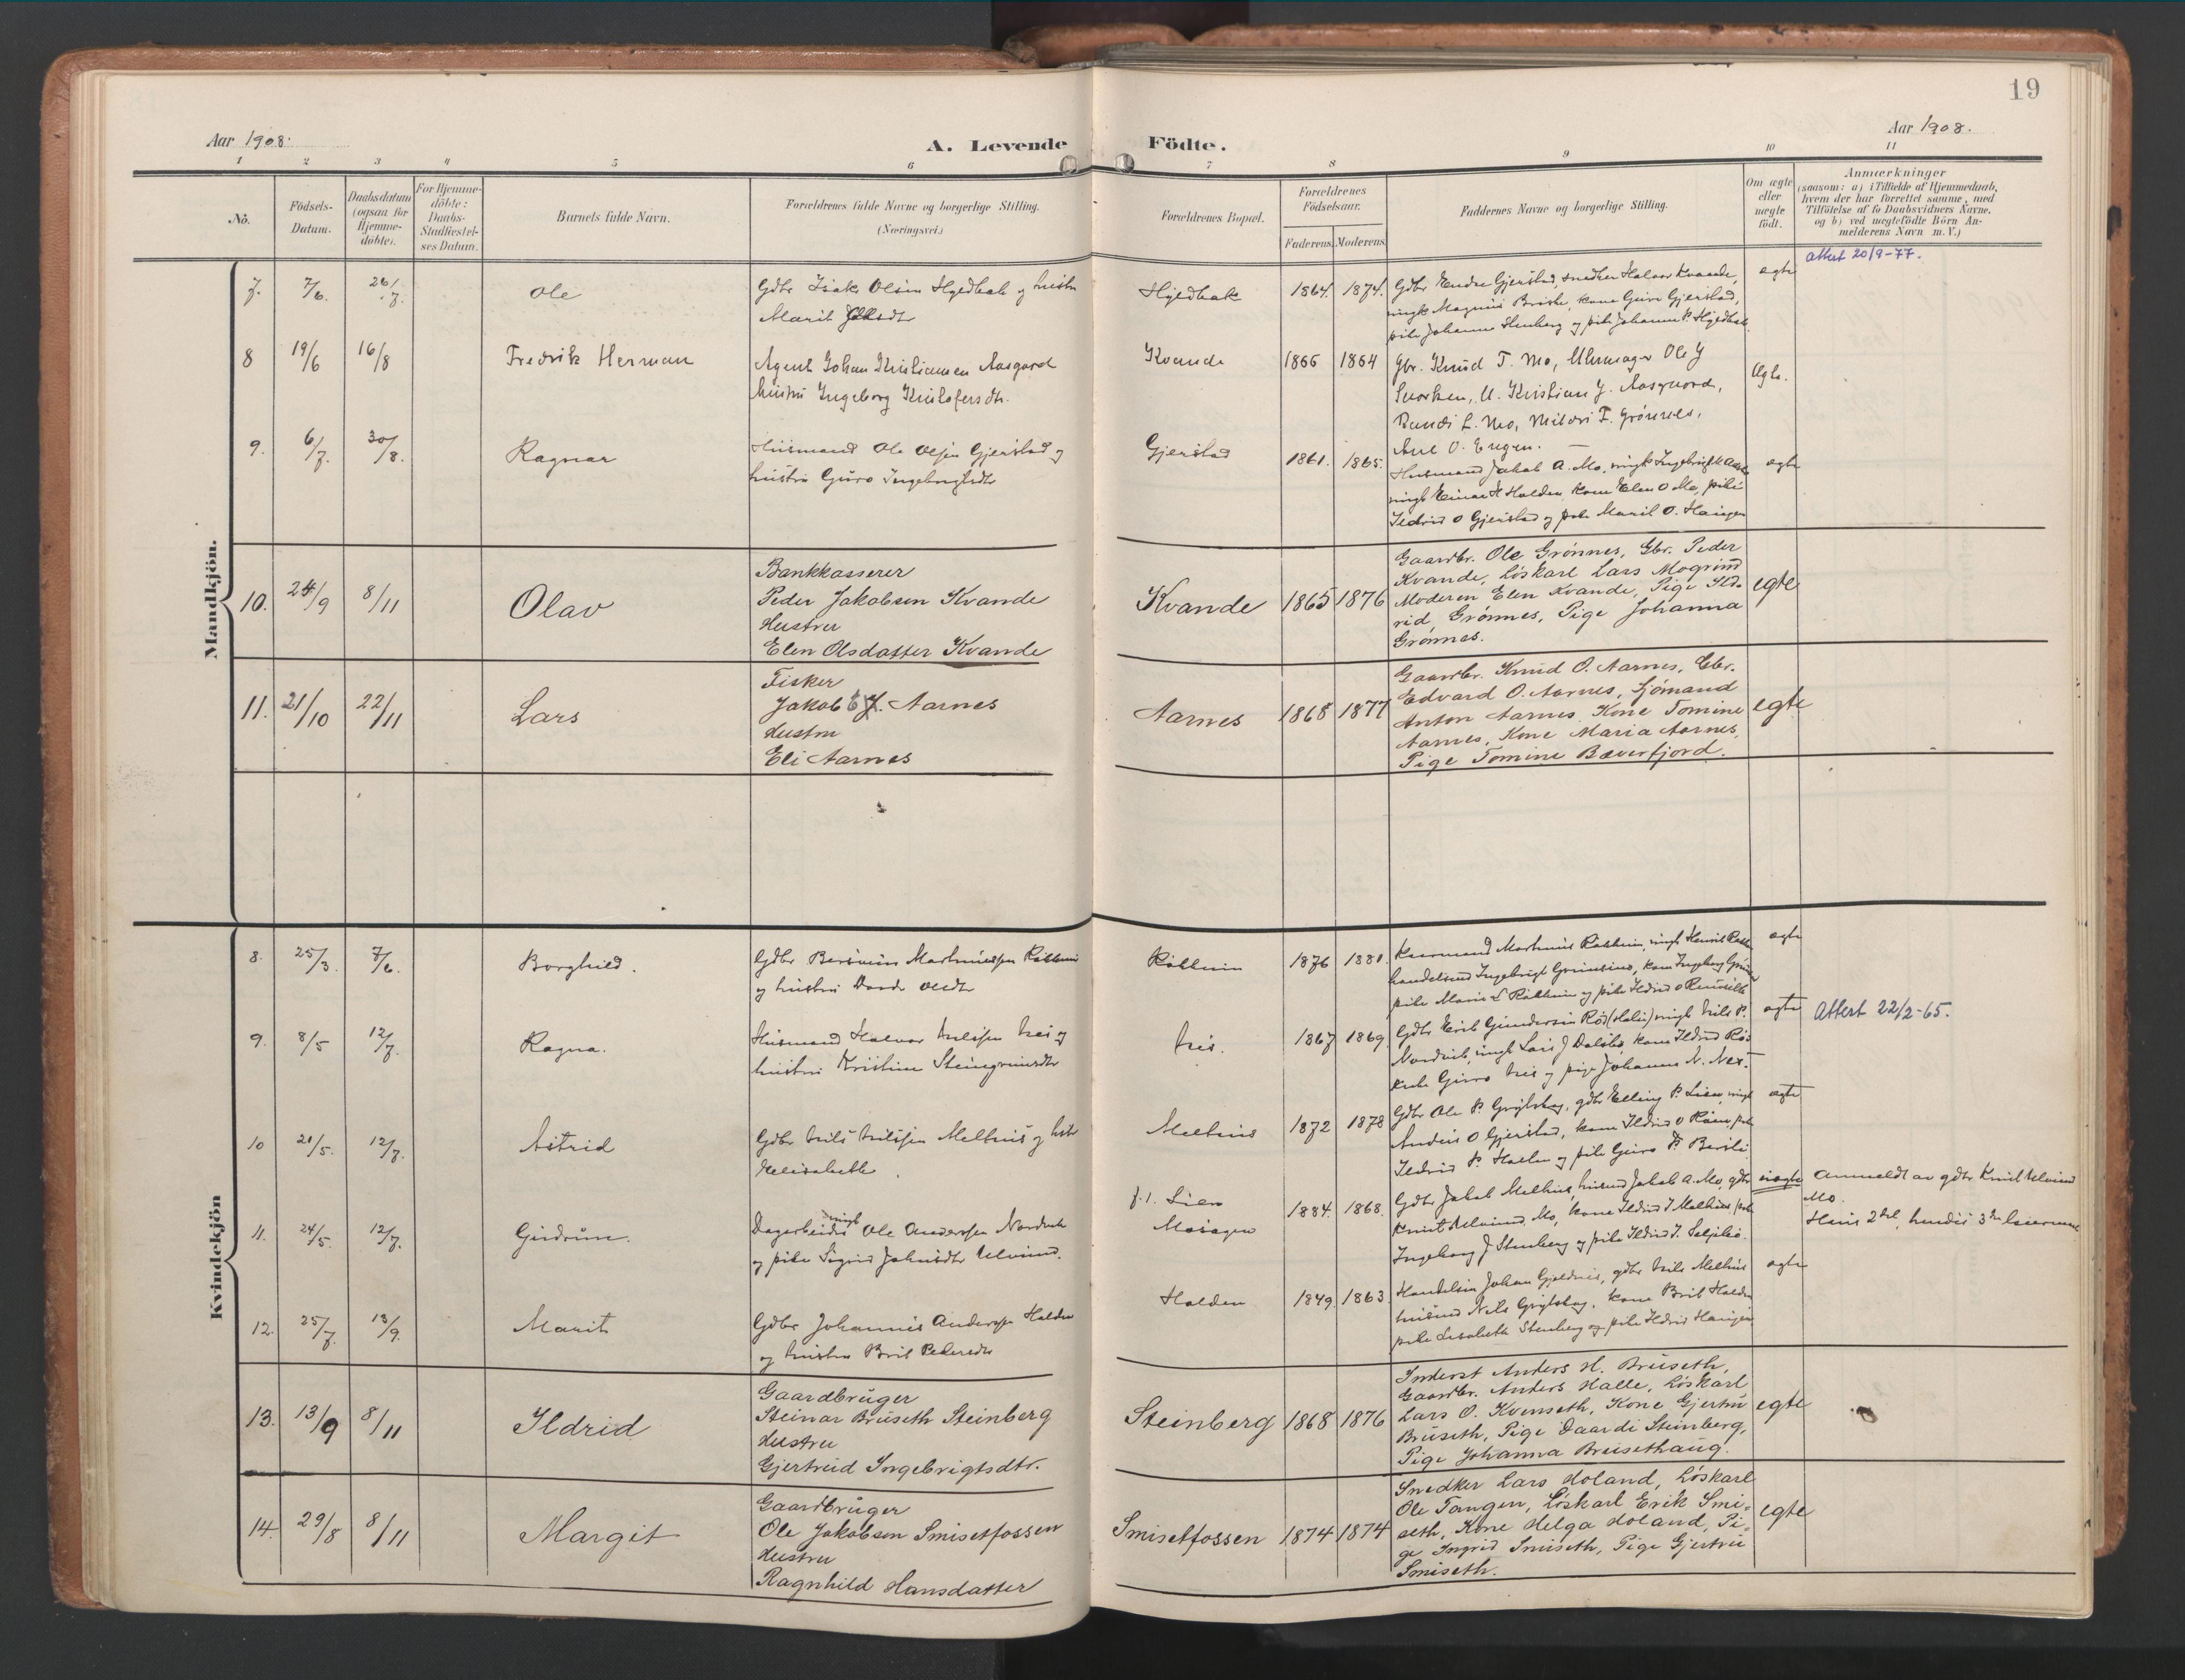 19
Aar 1908.
A. Levende
Födte.
Aar 1908.
1 2 3 4 5 6 7 8 9 10 11
No.
Födsels-
Datum.
Daabsdatum
(ogsaa for
Hjemme-
döbte).
For Hjemme-
döbte:
Daabs-
Stadfæstel-
ses Datum.
Barnets fulde Navn.
Forældrenes fulde Navne og borgerlige Stilling.
(Næringsvei.)
Forældrenes Bopæl.
Forældrenes
Födselsaar.
Faderens. Moderens.
Faddernes Navne og borgerlige Stilling.
Om ægte
eller
uægte
födt.
Anmærkninger
(saasom: a) i Tilfælde af Hjemmedaab,
hvem der har forrettet samme, med
Tilföielse af to Daabsvidners Navne,
og b) ved uægtefödte Börn An-
melderens Navn m. V.)
Mandkjön.
7. 7/6. 26/7. Ole
Gdbr Isak Olsen Hyldbak og hustru
Marit
Hyldbak 1864. 1874.
Gdbr Endre Gjerstad, snedker Halvor Kvande,
ungk Magnus Brøske, kone Guro Gjerstad,
pike Johanna Stenberg og pike Johanna P. Hyldbak
ægte
attest 20/9-77.
8 19/6 16/8 Fredrik Herman
Agent Johan Kristiansen Aasgard
hustru Ingeborg Kristofersdtr.
Kvande 1866 1864
Gbr. Knud T. Mo, Uhrmager Ole J
Snorken, U. Kristian J. Aasgaard,
Randi L. Mo, Mildri F. Grønnes,
Ane O. Engen.
Ægte.
9. 6/7. 30/8. Ragnar
Husmand Ole Olsen Gjerstad og
hustru Guro Ingebrigtsdtr
Gjerstad 1861. 1865.
Husmand Jakob A. Mo, ungk Ingebrigt
ungk Einar H Halden, kone Elen O Mo, pike
Ildrid O Gjerstad og pike Marit O. Haugen
ægte
10. 24/9 8/11 Olav
Bankkasserer
Peder Jakobsen Kvande
Hustru
Elen Olsdatter Kvande
Kvande 1865 1876
Gaardbr. Ole Grønnes, Gbr. Peder
Kvande, Løskarl Lars Mogrind
Moderen Elen Kvande, Pige Ild-
rid Grønnes, Pige Johanna
Grønnes.
egte
11. 21/10 22/11 Lars
Fisker
Jakob J. Aarnes
Hustru
Eli Aarnes
Aarnes 1868 1877
Gaardbr. Knud O. Aarnes, Gbr.
Edvard O. Aarnes, Sjømand
Anton Aarnes, Kone Tomine
Aarnes, Kone Maria Aarnes,
Pige Tomine Bæverfjord.
egte
Kvindekjön
8. 25/3. 7/6. Borghild.
Gdbr Bersvein Martinussen Røkkum
og hustru Dordi Olsdtr
Røkkum 1876 1880.
Martinus Røkkum, ungk Henrik
handelsmd Ingebrigt Grimsmo, kone Ingeborg
pike Marie L Røkkum og pike Ildrid O
ægte
9. 8/5 12/7. Ragna.
Husmand Halvor Nilssen Nes og
hustru Kristine Steingrimsdtr
Nes. 1867 1869.
Gdbr Erik Gundersen Røs (Halsa) ungk Nils P.
Nordvik, ungk Lars J Dalsbø, kone Ildrid Røs
Guro Nes og pige Johanna N. Nes.
ægte
Attest 22/2-65.
10 21/5. 12/7. Astrid
Gdbr Nils Nilssen Melhus og hstr
Elisabeth
Melhus 1872 1878
Gdbr Ole P. Grytbak, gdbr Elling P. Lien, ungk
Anders O Gjerstad, kone Ildrid O
Ildrid P. Hallen og pike Guro P. Bersli.
ægte
11. 24/5. 12/7. Gudrun.
Dagarbeider ungk Ole Anderssen Nordvik
og pike Sigrid Johnsdtr Ulvund.
f. l. Lien
Mosagen 1884. 1868.
Gdbr Jakob Melhus, husmd Jakob A. Mo, gdbr
Knut Ulvund, Mo, kone Ildrid J Melhus, pike
Ingeborg J Stenberg og pike Ildrid J.
uægte
anmeldt av gdbr Knut Ulvund
Mo.
Hans 2det, hendes 3die leiermaal
12. 25/7. 13/9. Marit
Gdbr Johannes Anderssen Halden
og hustru Brit Pedersdtr
Halden 1849. 1863.
Handelsm Johan Gjeldnes, gdbr Nils Melhus
husmd Nils Grytbak, kone Brit Halden
pike Lisabeth Stenberg og pike Ildrid Haugen
ægte
13. 13/9 8/11 Ildrid
Gaardbruger
Steinar Bruseth Steinberg
Hustru
Gjertrud Ingebrigtsdtr.
Steinberg 1868 1876
Inderst Anders H. Bruseth,
Gaardbr. Anders Halle, Løskarl
Lars O. Kvenseth, Kone Gjertru
Bruseth, Pige Daardi Steinberg,
Pige Johanna Bruisethaug.
egte
14. 29/8 8/11 Margit
Gaardbruger
Ole Jakobsen Smisetfossen
Hustru
Ragnhild Hansdatter
Smisetfossen 1874 1874
Snedker Lars Holand, Løskarl
Ole Tangen, Løskarl Erik Smi-
seth, Kone Helga Holand, Pi-
ge Ingrid Smiseth, Pige Gjertru
Smiseth.
egte